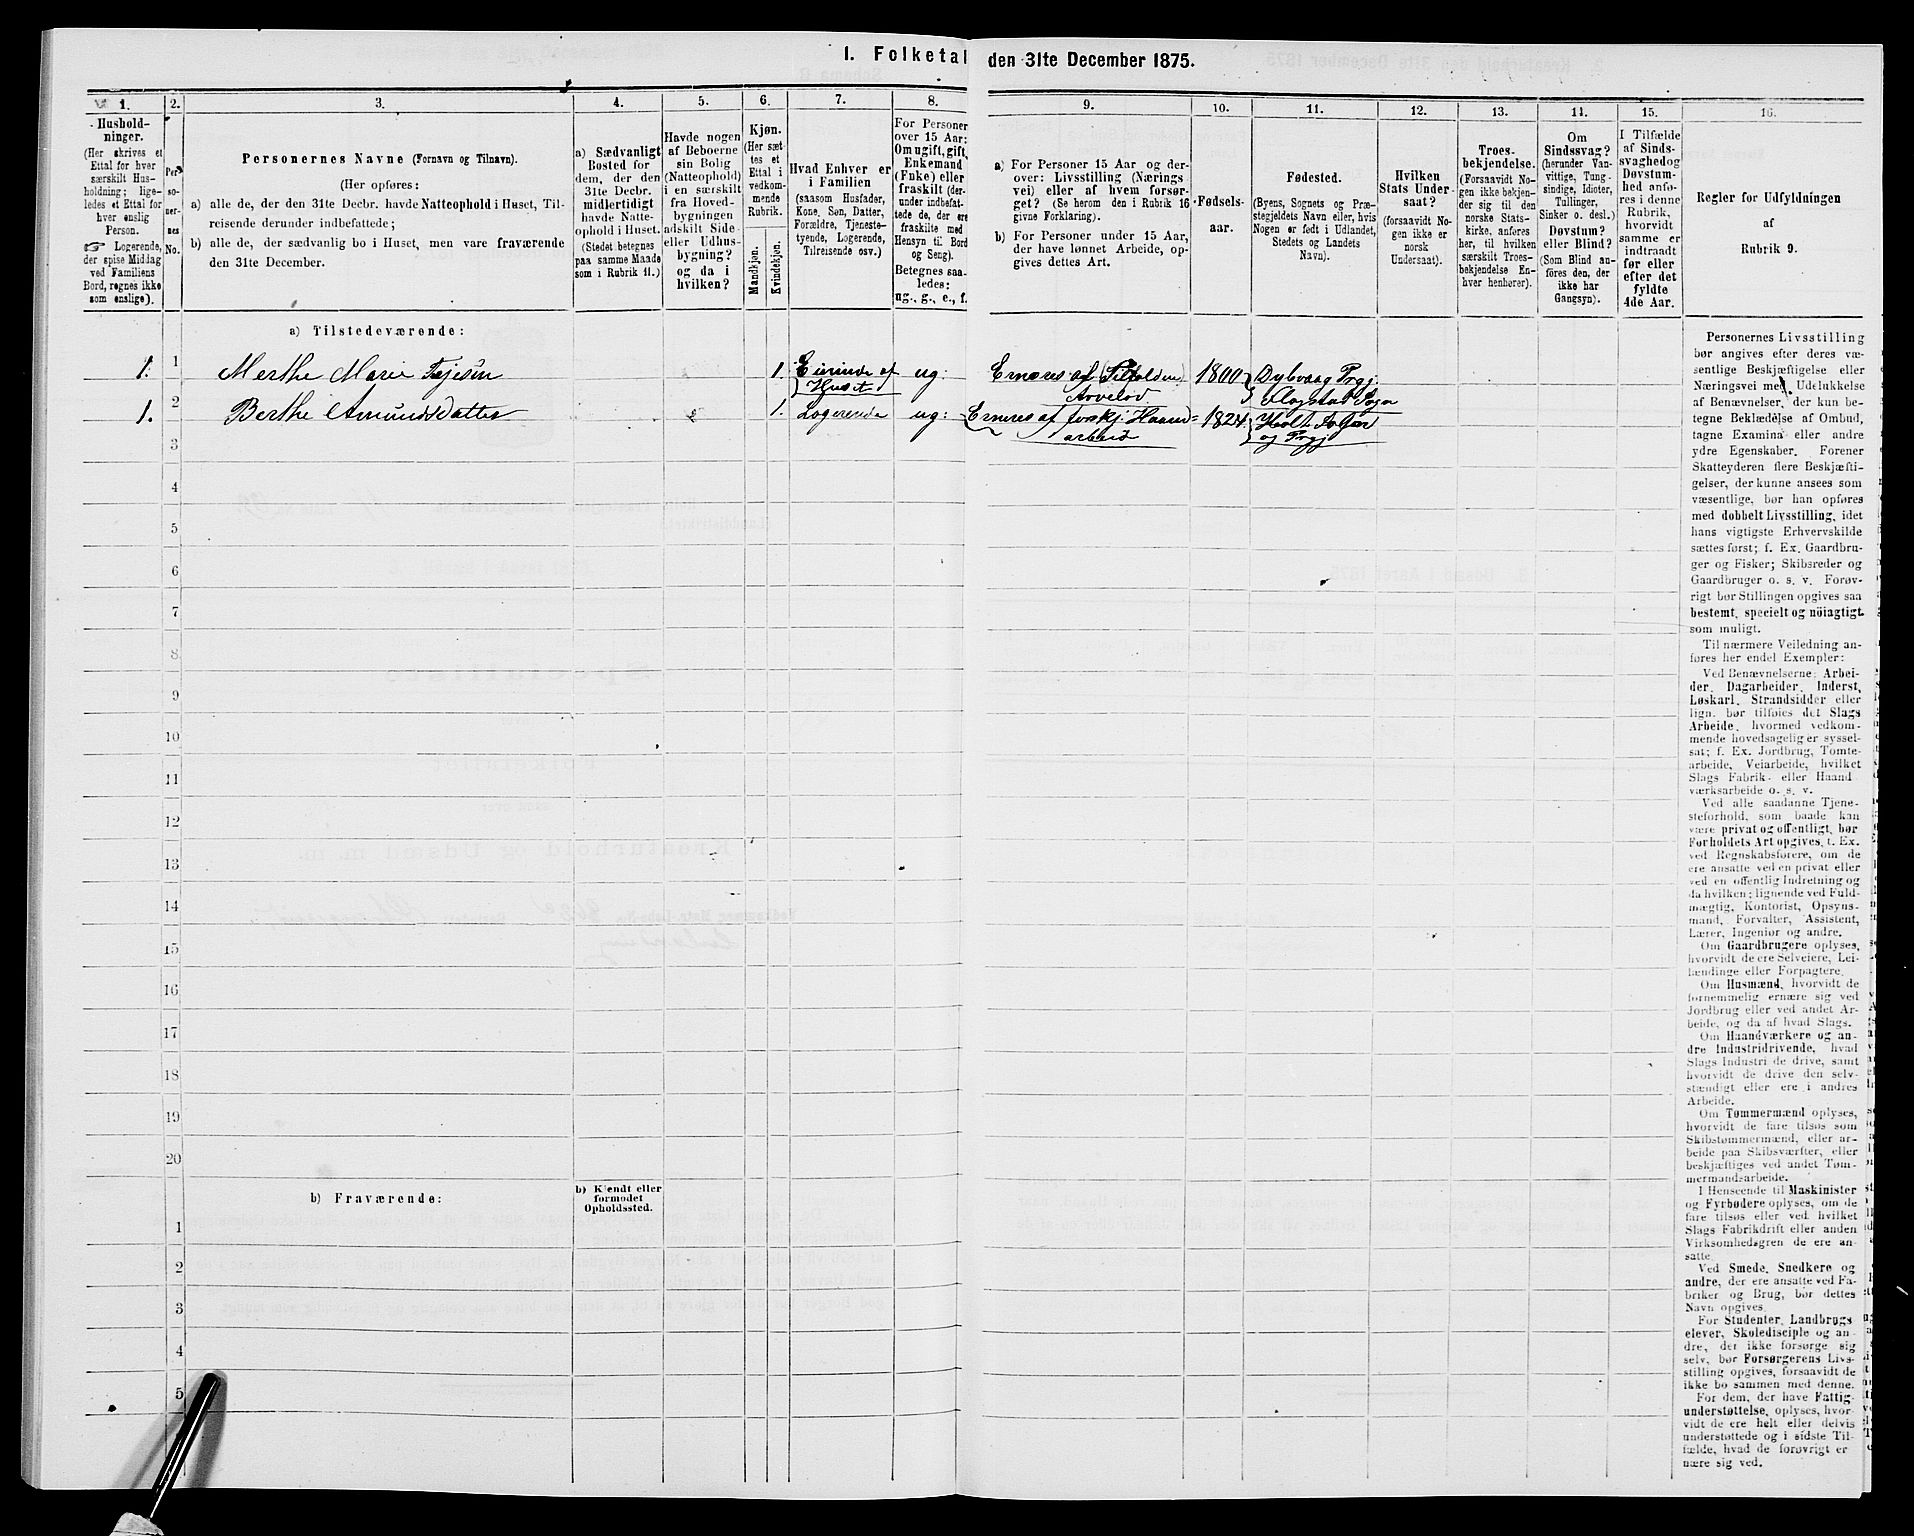 1. Folketal den 31te December 1875.
1.
Hushold-
ninger.
(Her skrives et
Ettal for hver
særskilt Hus-
holdning; lige-
ledes et Ettal for
hver enslig
Person.
☞ Logerende,
der spise Middag
ved Familiens
Bord, regnes ikke
som enslige).
2.
Per-
so-
ner-
nes
No.
3.
Personernes Navne (Fornavn og Tilnavn).
(Her opføres:
a) alle de, der den 31te Decbr. havde Natteophold i Huset, Til-
reisende derunder indbefattede;
b) alle de, der sædvanlig bo i Huset, men vare fraværende
den 31te December.
4.
a) Sædvanligt
Bosted for
dem, der den
31te Decbr.
midlertidigt
havde Natte-
ophold i Huset.
(Stedet betegnes
paa samme Maade
som i Rubrik 11.)
5.
Havde nogen
af Beboerne
sin Bolig
(Natteophold)
i en særskilt
fra Hoved-
bygningen
adskilt Side-
eller Udhus-
bygning?
og da i
hvilken?
6.
Kjøn.
(Her sæt-
tes et
Ettal i
vedkom-
mende
Rubrik.
Mandkjøn.
Kvindekjøn.
7.
Hvad Enhver er
i Familien
(saasom Husfader,
Kone, Søn, Datter,
Forældre, Tjeneste-
tyende, Logerende,
Tilreisende osv.)
8.
For Personer
over 15 Aar:
Om ugift, gift,
Enkemand
(Enke) eller
fraskilt (der-
under indbefat-
tede de, der ere
fraskilte med
Hensyn til Bord
og Seng).
Betegnes saa-
ledes:
ug., g., e., f.
9.
a) For Personer 15 Aar og der-
over: Livsstilling (Nærings
vei) eller af hvem forsør-
get? (Se herom den i Rubrik 16
givne Forklaring).
b) For Personer under 15 Aar,
der have lønnet Arbeide, op-
gives dettes Art.
10.
Fødsels-
aar.
11.
Fødested.
(Byens, Sognets og Præ-
stegjeldets Navn eller, hvis
Nogen er født i Udlandet,
Stedets og Landets
Navn).
12.
Hvilken
Stats Under-
saat?
(forsaavidt No-
gen ikke er
norsk
Undersaat).
13.
Troes-
bekjendelse.
(Forsaavidt No-
gen ikke bekjen-
der sig til den
norske Stats-
kirke, anføres
her, til hvilken
særskilt Troes-
bekjendelse En-
hver henhører).
14.
Om
Sindssvag?
(herunder Van-
vittige, Tung-
sindige, Idioter,
Tullinger,
Sinker o. desl.)
Døvstum?
eller Blind?
(Som Blind an-
føres den, der
ikke har
Gangsyn).
15.
I Tilfælde
af Sinds-
svaghed og
Døvstum-
hed anfø-
res i denne
Rubrik,
hvorvidt
samme er
indtraadt
før eller
efter det
fyldte
4de Aar.
16.
Regler for Udfyldningen
af
Rubrik 9.
a) Tilstedeværende:
1. 1 Merthe Marie Tejesøn 1. Eierinde af Huset ug: Ernæres af Arvelod 1800 Dybvaag Prgj. Flagstad Sogn
1. 2 Berthe Amundsdatter 1. Logerende ug: Ernæres af forskj. Haand= arbeid 1824 Holt Sogn og Prgj
3
4
5
6
7
8
9
10
11
12
13
14
15
16
17
18
19
20
b) Fraværende:
b) Kjendt eller
formodet
Opholdssted.
1
2
3
4
5
Personernes Livsstilling
bør angives efter deres væ-
sentlige Beskjæftigelse eller
Næringsvei med Udelukkelse
af Benævnelser, der kun be-
tegne Beklædelse af Ombud,
tagne Examina eller andre
ydre Egenskaber. Forener
Skatteyderen flere Beskjæfti-
gelser, der kunne ansees som
væsentlige, bør han opføres
med dobbelt Livsstilling, idet
hans vigtigste Erhvervskilde
sættes først; f. Ex. Gaardbru-
ger og Fisker; Skibsreder og
Gaardbruger o. s. v. Forøv-
rigt bør Stillingen opgives saa
bestemt, specielt og nöiagtigt
som muligt.
Til nærmere Veiledning an-
føres her endel Exempler:
Ved Benævnelserne: Arbei-
der, Dagarbeider, Inderst,
Løskarl, Strandsidder eller
lign. bør tilføies det Slags
Arbeide, hvormed vedkom-
mende hovedsagelig er syssel-
sat; f. Ex. Jordbrug, Tomte-
arbeide, Veiarbeide, hvilket
Slags Fabrik- eller Haand
værksarbeide o. s. v.
Ved alle saadanne Tjene-
steforhold, som baade kan
være privat og offentligt, bør
Forholdets Art opgives, f. Ex.
ved Regnskabsførere, om de
ere ansatte ved en privat eller
ved en offentlig Indretning og
da hvilken; lignende ved Fuld-
mægtig, Kontorist, Opsyns-
mand, Forvalter, Assistent,
Lærer, Ingeniør og andre.
Om Gaardbrugere oplyses,
hvorvidt de ere Selveiere, Lei-
lændinge eller Forpagtere.
Om Husmænd, hvorvidt de
fornemmelig ernære sig ved
Jordbrug eller ved andet Ar-
beide, og da af hvad Slags.
Om Haandværkere og an-
dre Industridrivende, hvad
Slags Industri de drive, samt
hvorvidt de drive den selv-
stændigt eller ere i andres
Arbeide.
Om Tømmermænd oplyses,
hvorvidt de fare tilsøs som
Skibstømmermænd, eller ar-
beide paa Skibsværfter, eller
beskjæftiges ved andet Tøm-
mermandsarbeide.
I Henseende til Maskinister
og Fyrbødere oplyses, om de
fare tilsøs eller ved hvilket
Slags Fabrikdrift eller anden
Virksomhedsgren de ere an-
satte.
Ved Smede, Snedkere og
andre, der ere ansatte ved Fa-
briker og Brug, bør dettes
Navn opgives.
For Studenter, Landbrugs
elever, Skoledisciple og an-
dre, der ikke forsørge sig
selv, bør Forsørgerens Livs-
stilling opgives, forsaavidt de
ikke bo sammen med denne.
For dem, der have Fattig-
understøttelse, oplyses, hvor-
vidt de ere helt eller delvis
understøttede og i sidste Til-
fælde, hvad de forøvrigt er
nære sig ved.